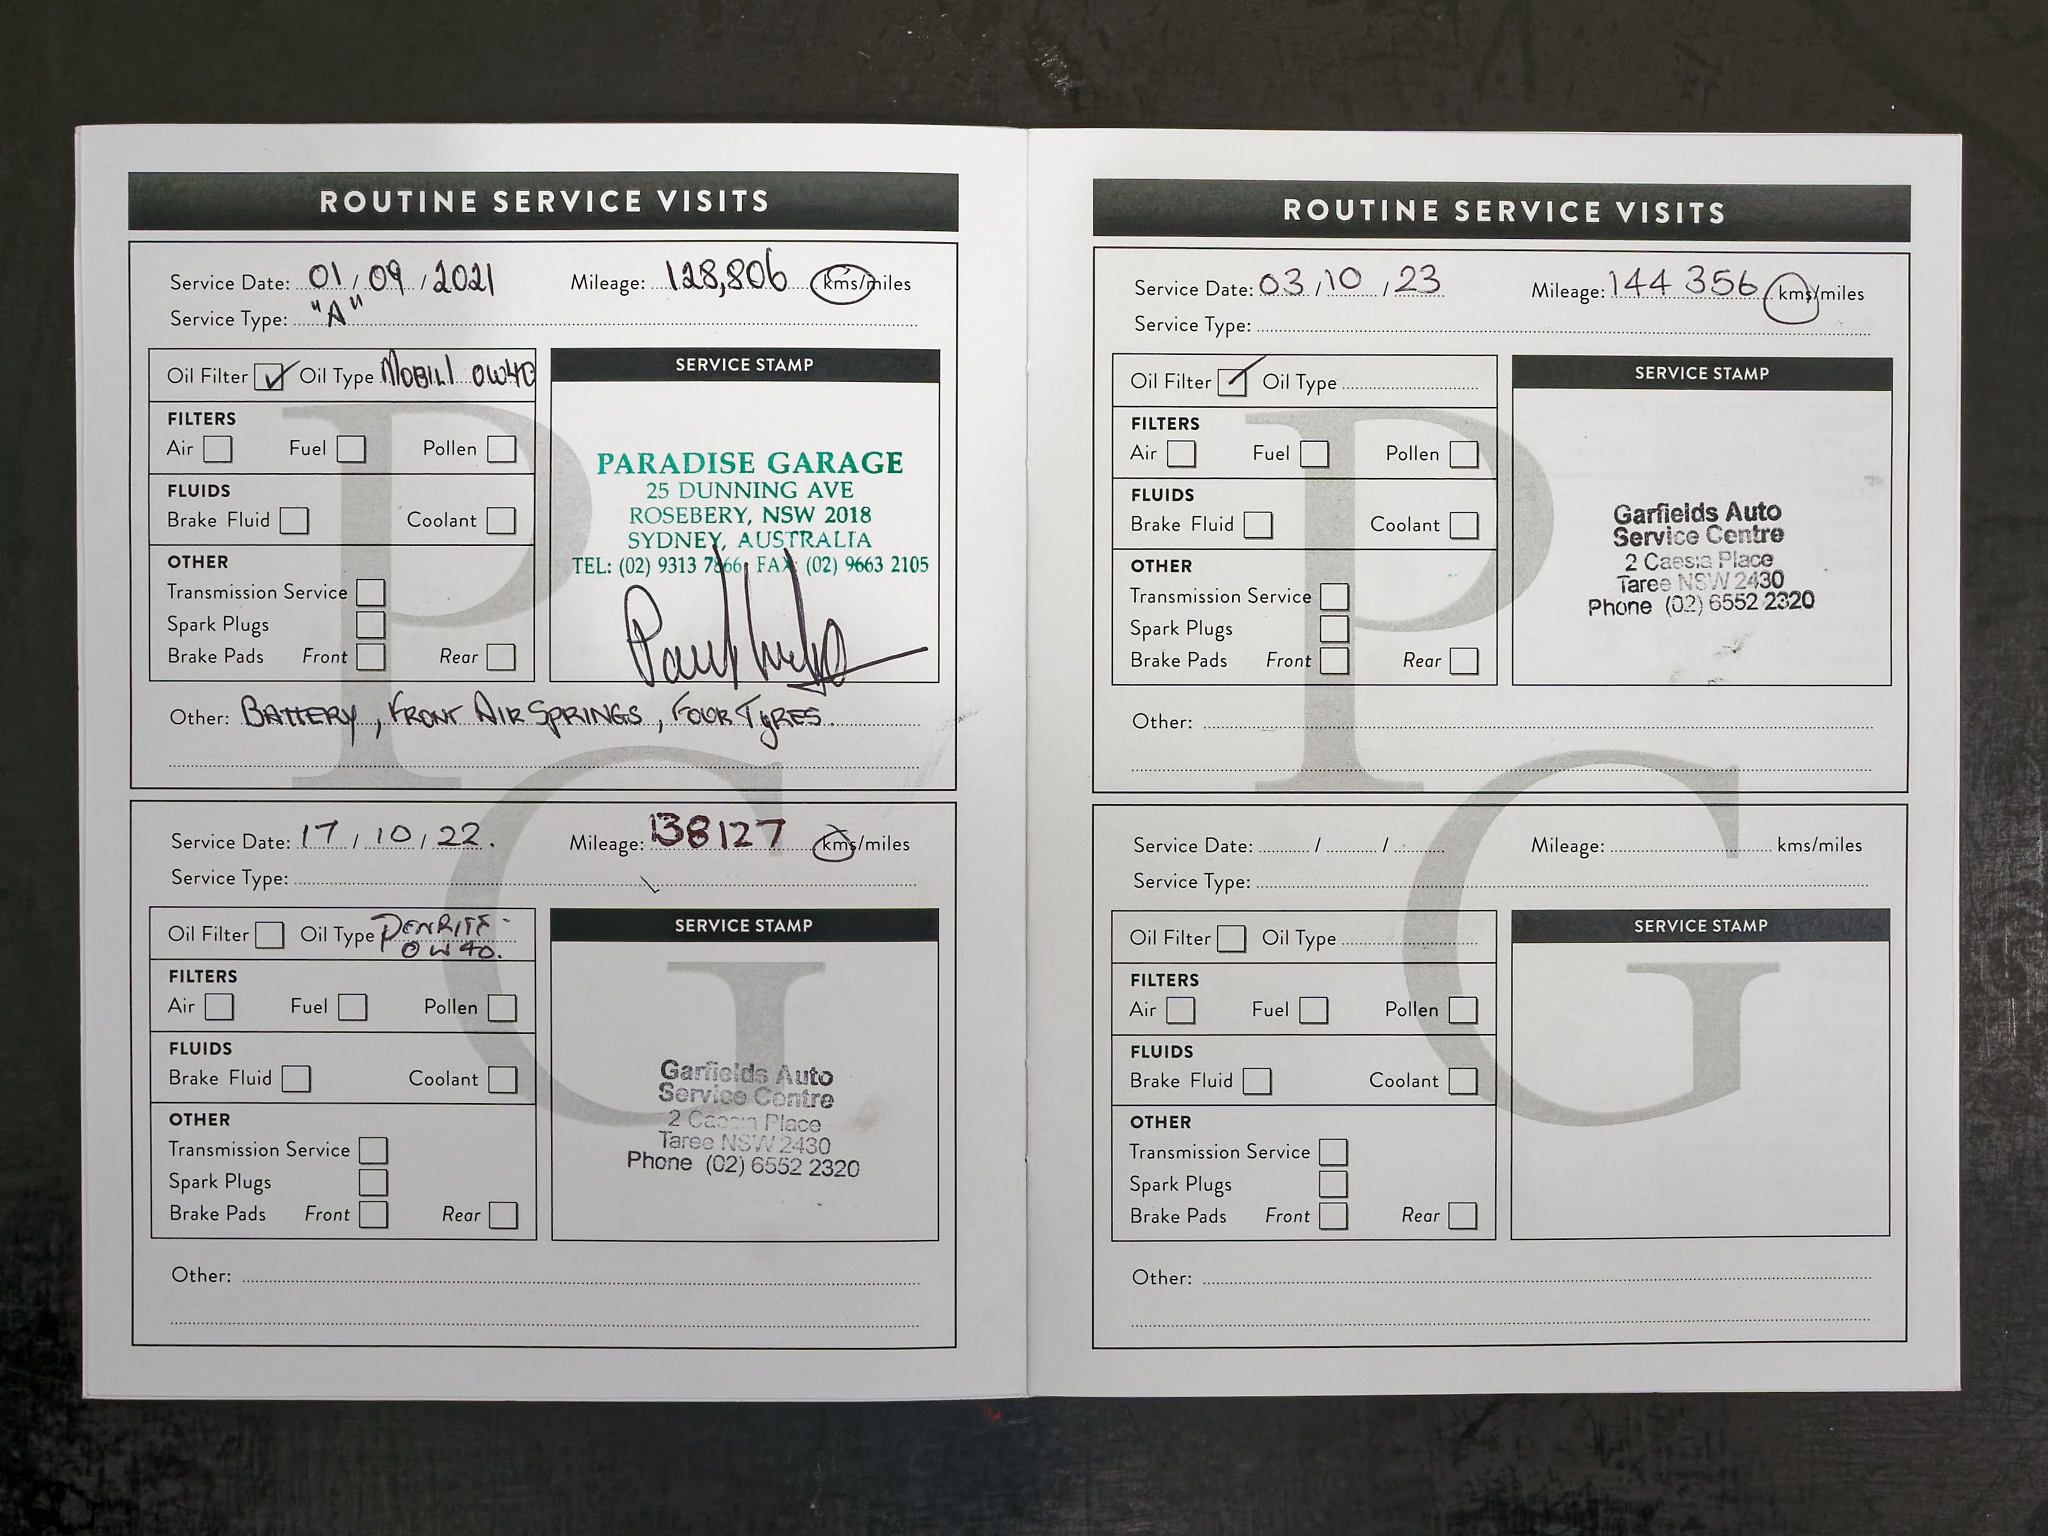 ROUTINE SERVICE VISITS
Service Date: 01 / 09 / 2021 Mileage: 128,806 kms/miles
Service Type: "A"
Oil Filter Oil Type MOBIL 1 0W40
FILTERS
Air Fuel Pollen
FLUIDS
Brake Fluid Coolant
OTHER
Transmission Service
Spark Plugs
Brake Pads Front Rear
SERVICE STAMP
PARADISE GARAGE
25 DUNNING AVE
ROSEBERY, NSW 2018
SYDNEY, AUSTRALIA
TEL: (02) 9313 7866 FAX: (02) 9663 2105
Other: BATTERY, FRONT AIR SPRINGS, FOUR TYRES.
Service Date: 17 / 10 / 22. Mileage: 138127 kms/miles
Service Type:
Oil Filter Oil Type PENRITE -
0W40.
FILTERS
Air Fuel Pollen
FLUIDS
Brake Fluid Coolant
OTHER
Transmission Service
Spark Plugs
Brake Pads Front Rear
SERVICE STAMP
Garfields Auto
Service Centre
2 Caesia Place
Taree NSW 2430
Phone (02) 6552 2320
Other:
PG
ROUTINE SERVICE VISITS
Service Date: 03 / 10 / 23 Mileage: 144 356 kms/miles
Service Type:
Oil Filter Oil Type
FILTERS
Air Fuel Pollen
FLUIDS
Brake Fluid Coolant
OTHER
Transmission Service
Spark Plugs
Brake Pads Front Rear
SERVICE STAMP
Garfields Auto
Service Centre
2 Caesia Place
Taree NSW 2430
Phone (02) 6552 2320
Other:
Service Date: / / Mileage: kms/miles
Service Type:
Oil Filter Oil Type
FILTERS
Air Fuel Pollen
FLUIDS
Brake Fluid Coolant
OTHER
Transmission Service
Spark Plugs
Brake Pads Front Rear
SERVICE STAMP
Other:
PG